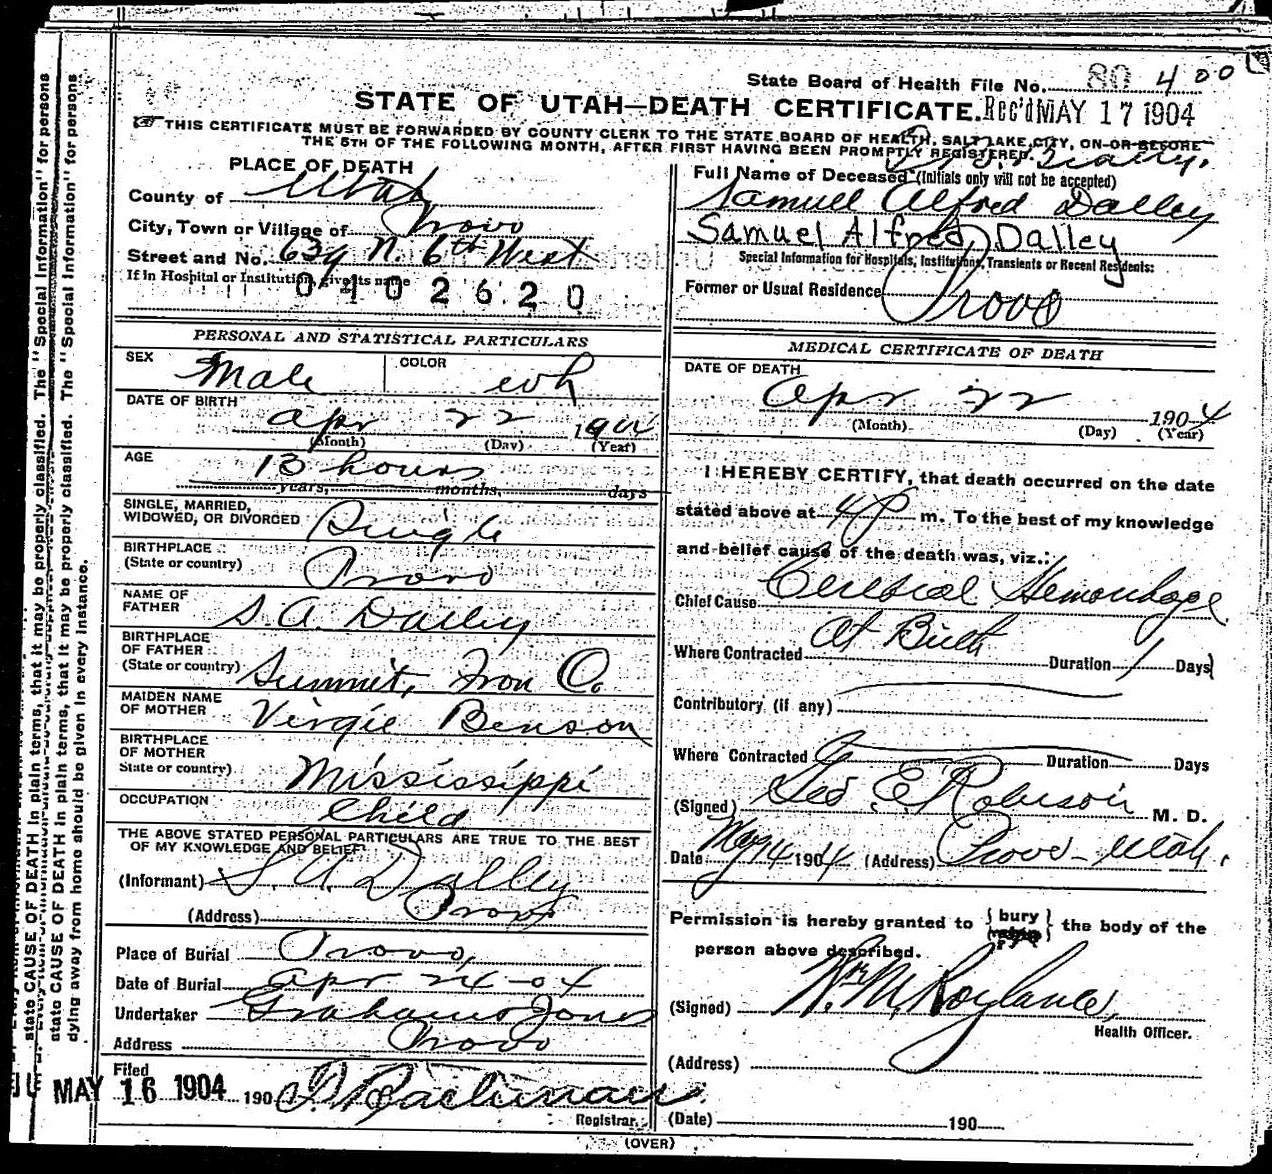 State Board of Health File No. 80 400
STATE OF UTAH—DEATH CERTIFICATE. Rec'd MAY 17 1904
THIS CERTIFICATE MUST BE FORWARDED BY COUNTY CLERK TO THE STATE BOARD OF HEALTH, SALT LAKE CITY, ON OR BEFORE
THE 5TH OF THE FOLLOWING MONTH, AFTER FIRST HAVING BEEN PROMPTLY REGISTERED.
PLACE OF DEATH
County of Utah
City, Town or Village of Provo
Street and No. 639 N. 6th West
If in Hospital or Institution, give its name
0102620
Full Name of Deceased (Initials only will not be accepted)
Samuel Alfred Dalley
Samuel Alfred Dalley
Special Information for Hospitals, Institutions, Transients or Recent Residents:
Former or Usual Residence Provo
PERSONAL AND STATISTICAL PARTICULARS
SEX Male COLOR wh
DATE OF BIRTH Apr 22 1904
(Month) (Day) (Year)
AGE 13 hours
years, months, days
SINGLE, MARRIED,
WIDOWED, OR DIVORCED Single
BIRTHPLACE
(State or country) Provo
NAME OF
FATHER S. A. Dalley
BIRTHPLACE
OF FATHER
(State or country) Summit, Iron Co.
MAIDEN NAME
OF MOTHER Virgie Benson
BIRTHPLACE
OF MOTHER
State or country) Mississippi
OCCUPATION Child
THE ABOVE STATED PERSONAL PARTICULARS ARE TRUE TO THE BEST
OF MY KNOWLEDGE AND BELIEF
(Informant) S. A. Dalley
(Address) Provo
Place of Burial Provo,
Date of Burial Apr 24-04
Undertaker Graham Jones
Address Provo
Filed
MAY 16 1904 190
Registrar.
MEDICAL CERTIFICATE OF DEATH
DATE OF DEATH
Apr 22 1904
(Month) (Day) (Year)
I HEREBY CERTIFY, that death occurred on the date
stated above at 4 P m. To the best of my knowledge
and belief cause of the death was, viz.:
Chief Cause Cerebral Hemorrhage
Where Contracted At Birth Duration 1 Days
Contributory (if any)
Where Contracted Duration Days
(Signed) Geo E Robison M. D.
Date May 14 1904 (Address) Provo - Utah.
Permission is hereby granted to bury the body of the
person above described.
(Signed) Wm M. Roylance,
Health Officer.
(Address)
(Date) 190
(OVER)
state CAUSE OF DEATH in plain terms, that it may be properly classified. The "Special Information" for persons
dying away from home should be given in every instance.